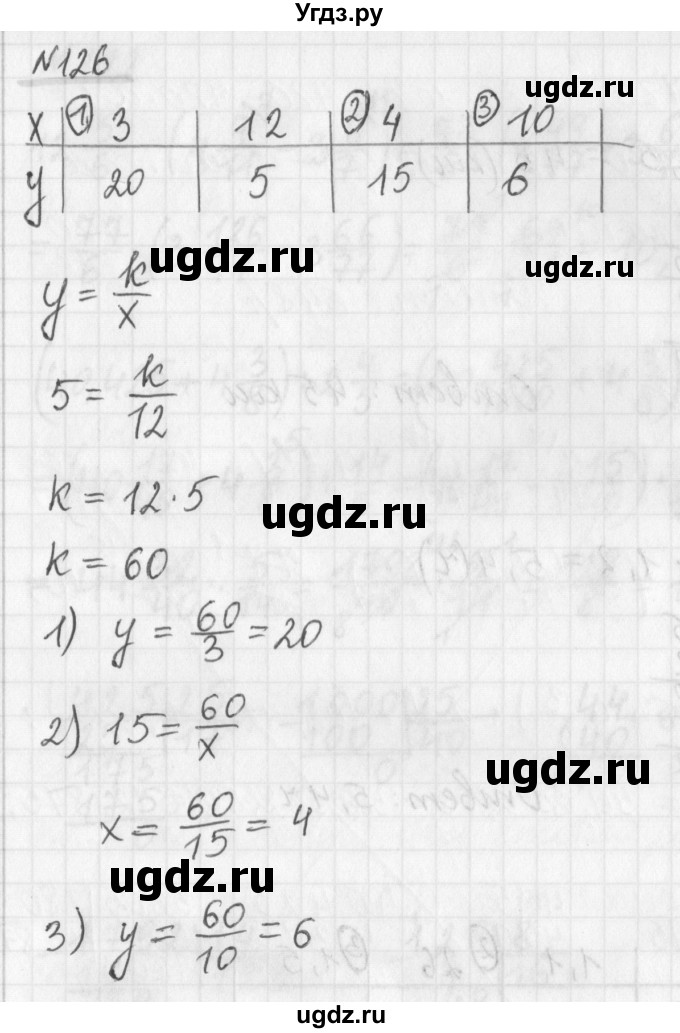 Угдз.ру
№126
ugdz.ru
x | ① 3 | 12 | ② 4 | ③ 10
y | 20 | 5 | 15 | 6
ugdz.ru
ugdz.ru
y = k/x
5 = k/12
k = 12·5
ugdz.ru
k = 60
1) y = 60/3 = 20
2) 15 = 60/x
ugdz.ru
x = 60/15 = 4
ugdz.ru
3) y = 60/10 = 6
ugdz.ru